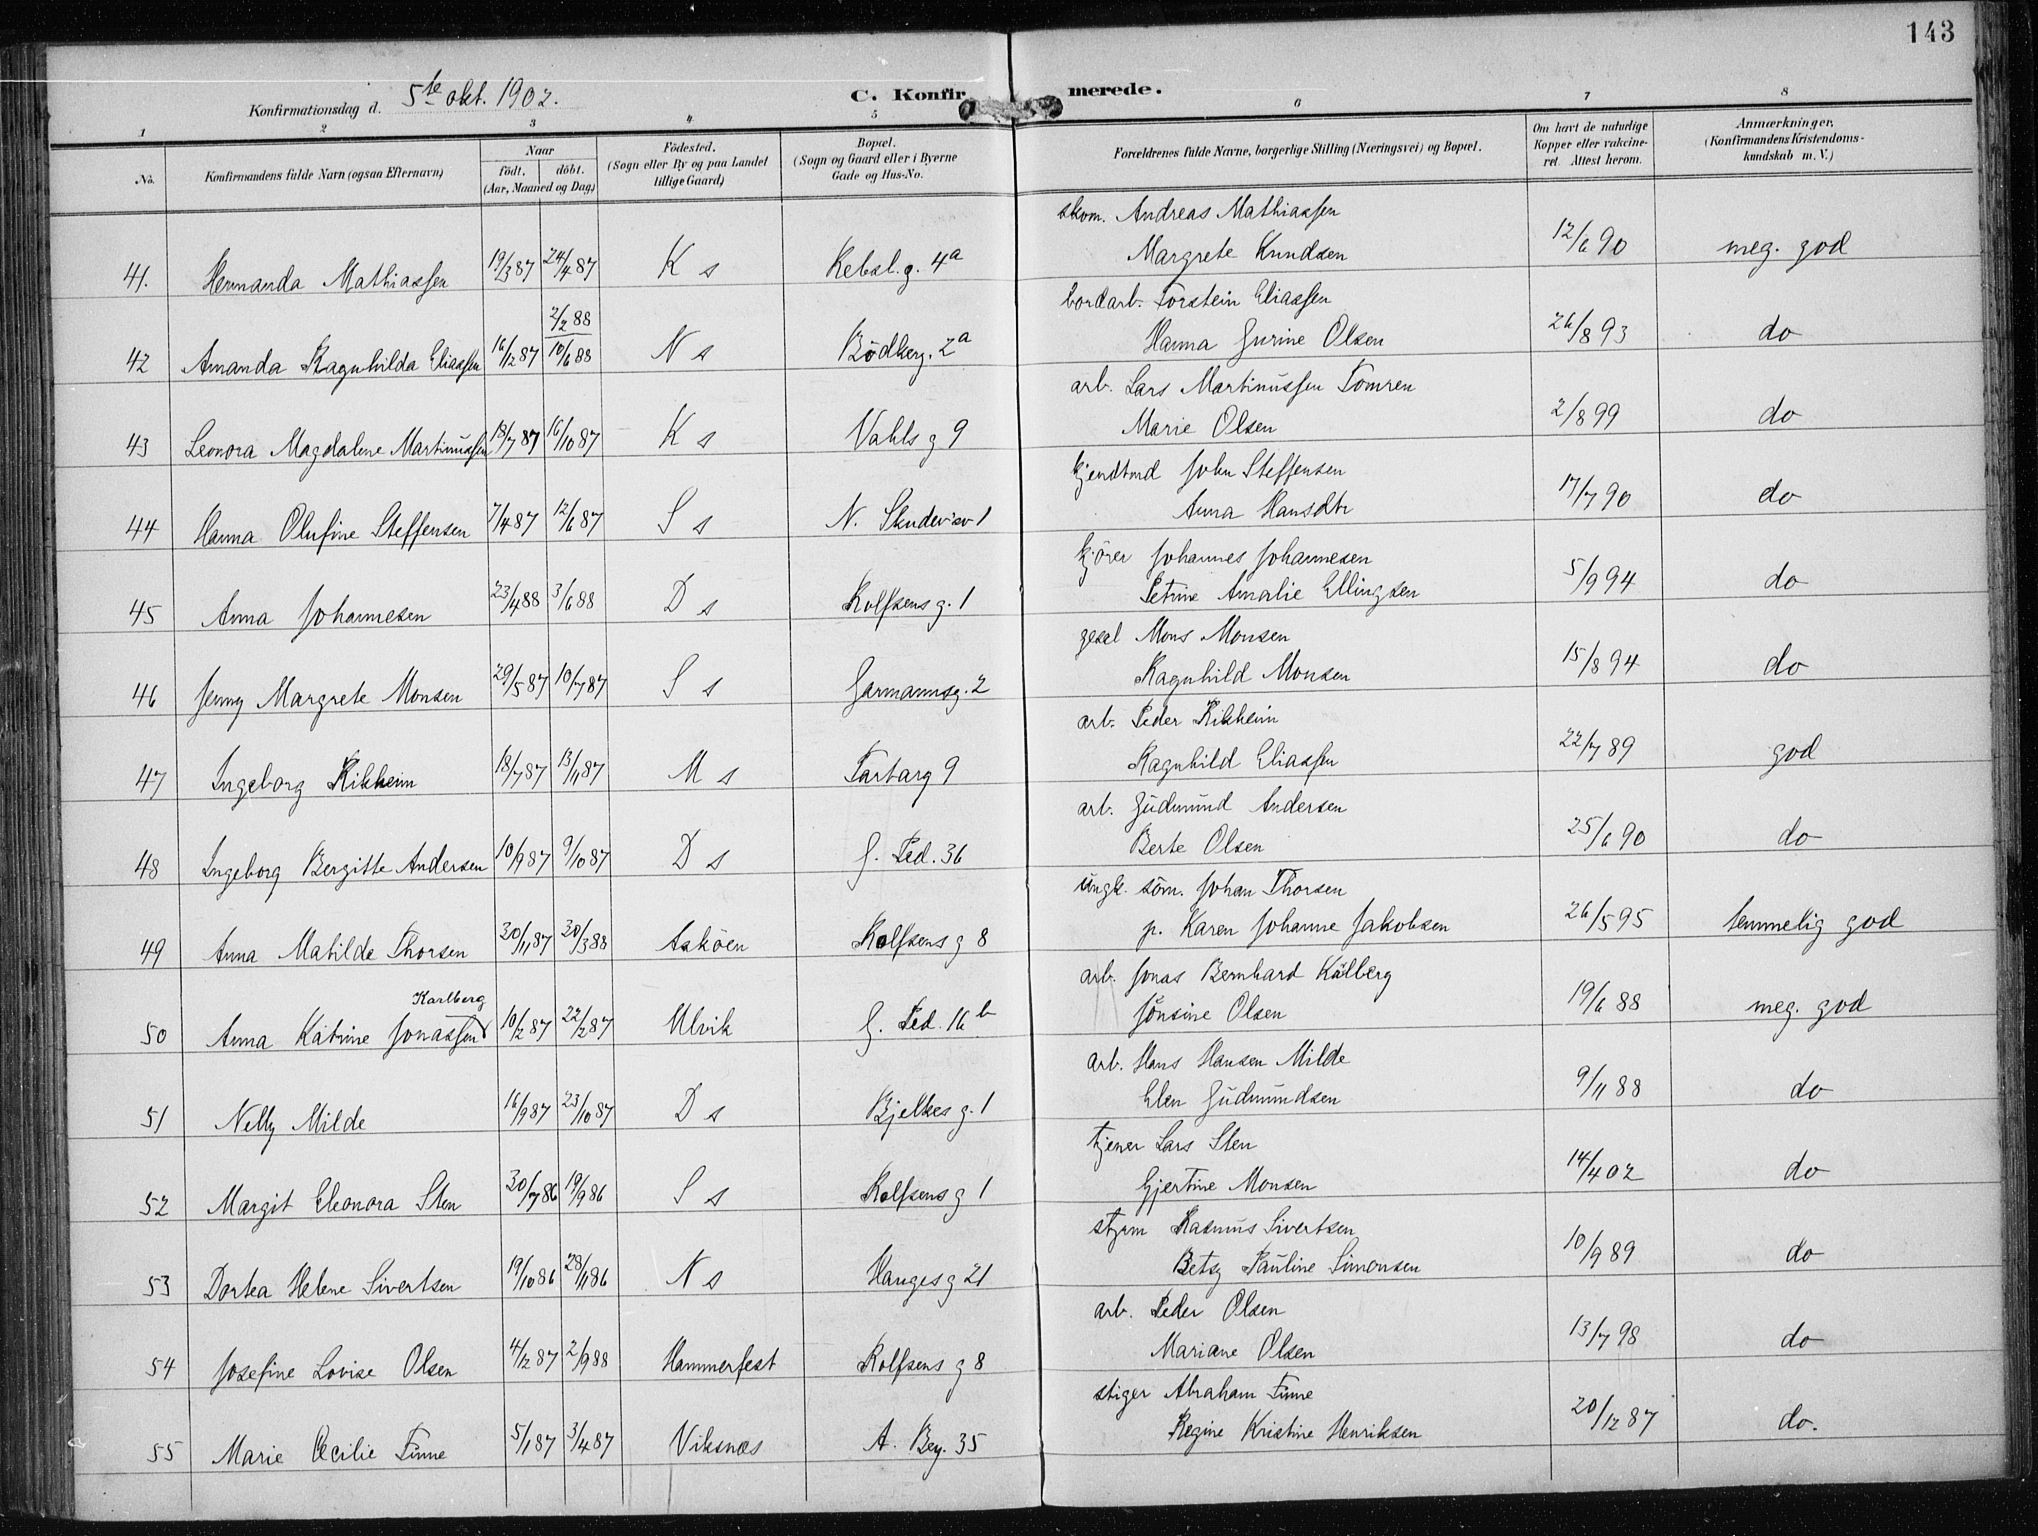 143
Konfirmationsdag d. 5te okt. 1902.
C. Konfirmerede.
1 2 3 4 5 6 7 8
No.
Konfirmandens fulde Navn (ogsaa Efternavn)
Naar
födt. döbt.
(Aar, Maaned og Dag)
Födested.
(Sogn eller By og paa Landet
tillige Gaard)
Bopæl.
(Sogn og Gaard eller i Byerne
Gade og Hus-No.
Forældrenes fulde Navne, borgerlige Stilling (Næringsvei) og Bopæl.
Om havt de naturlige
Kopper eller vakcine-
ret. Attest herom.
Anmærkninger.
(Konfirmandens Kristendoms-
kundskab m. V.)
skom. Andreas Mathiassen
41. Hermanda Mathiassen 19/3 87 24/4 87 K s Rebsl. g. 4a Margrete Knudsen 12/6 90 meg. god
bordarb. Torstein Eliassen
2/2 88
42 Amanda Ragnhilda Eliassen 16/12 87 10/6 88 N s Bödkerg. 2a Hanna Gurine Olsen 26/8 93 do
arb. Lars Martinussen Tomren
43 Leonora Magdalene Martinussen 18/7 87 16/10 87 K s Vahls g 9 Marie Olsen 2/8 99 do
kjendtmd John Steffensen
44 Hanna Olufine Steffensen 7/4 87 12/6 87 S s N. Skudev'sv 1 Anna Hansdtr 17/7 90 do
kjörer Johannes Johannesen
45 Anna Johannesen 23/4 88 3/6 88 D s Rolfsens g. 1 Petrine Amalie Ellingsen 5/9 94 do
gesel Mons Monsen
46 Jenny Margrete Monsen 29/5 87 10/7 87 S s Garmannsg. 2 Ragnhild Monsen 15/8 94 do
arb. Peder Rikheim
47 Ingeborg Rikheim 18/7 87 13/11 87 M s Tartarg 9 Ragnhild Eliassen 22/7 89 god
arb. Gudmund Andersen
48 Ingeborg Bergitte Andersen 10/9 87 9/10 87 D s G. Ped. 36 Berte Olsen 25/6 90 do
ungk. söm. Johan Thorsen
49 Anna Matilde Thorsen 30/11 87 30/3 88 Asköen Rolfsens g 8 p. Karen Johanne Jakobsen 26/5 95 temmelig god
arb. Jonas Bernhard Kälberg
Karlberg
50 Anna Katrine Jonassen 10/2 87 22/2 87 Ulvik G. Ped. 16b Jonsine Olsen 19/6 88 meg. god
arb. Hans Hansen Milde
51 Nelly Milde 16/9 87 23/10 87 D s Bjelkes g. 1 Elen Gudmundsen 9/11 88 do
tjener Lars Sten
52 Margit Eleonora Sten 30/7 86 19/9 86 S s Rolfsens g 1 Gjertine Monsen 14/4 02 do
styrm Rasmus Sivertsen
53 Dortea Helene Sivertsen 19/10 86 28/11 86 N s Hauges g 21 Betsy Pauline Simonsen 10/9 89 do
arb. Peder Olsen
54 Josefine Lovise Olsen 4/12 87 2/9 88 Hammerfest Rolfsens g 8 Mariane Olsen 13/7 98 do
stiger Abraham Finne
55 Marie Cecilie Finne 5/1 87 3/4 87 Viksnæs A. Bey. 35 Regine Kristine Henriksen 20/12 87 do.